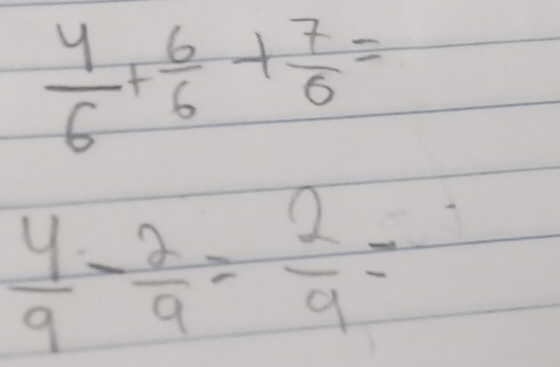 4/6 + 6/6 + 7/6 =
4/9 - 2/9 = 2/9 =